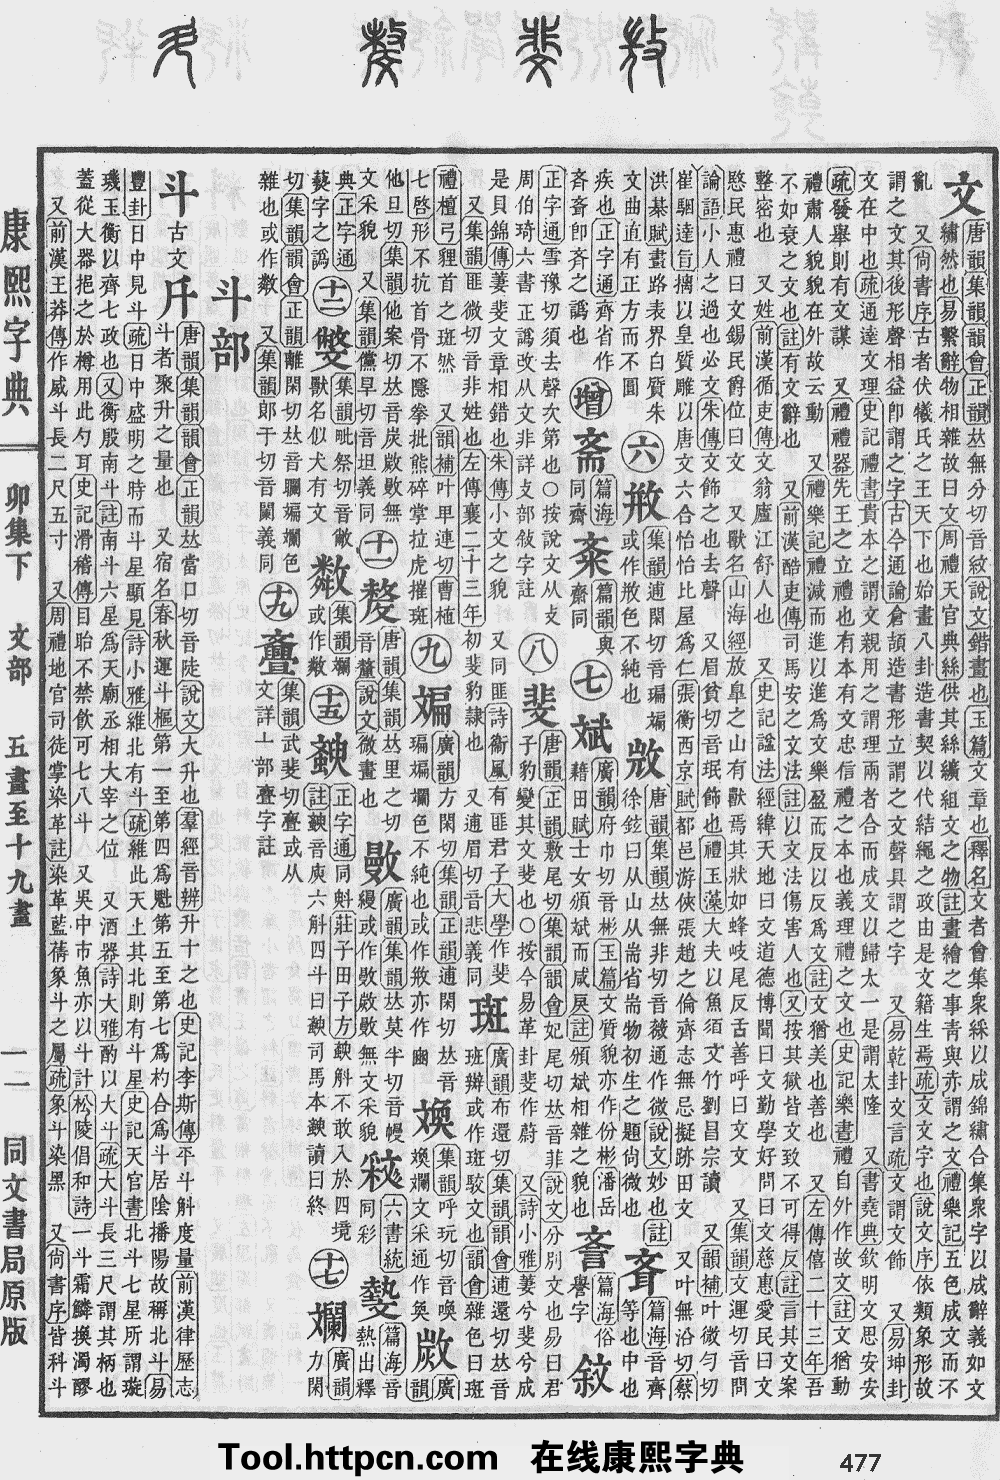 康熙字典 卯集下 文部 五畫至十九畫 一一 同文書局原版
文 唐韻集韻韻會正韻𠀤無分切音紋說文錯畫也玉篇文章也釋名文者會集衆綵以成錦繡合集衆字以成辭義如文
繡然也易繫辭物相雜故曰文周禮天官典絲供其絲纊組文之物註畫繪之事青與赤謂之文禮樂記五色成文而不
亂 又尚書序古者伏犧氏之王天下也始畫八卦造書契以代結繩之政由是文籍生焉疏文文字也說文序依類象形故
謂之文其後形聲相益卽謂之字古今通論倉頡造書形立謂之文聲具謂之字 又易乾卦文言疏文謂文飾 又易坤卦
文在中也疏通達文理史記禮書貴本之謂文親用之謂理兩者合而成文以歸太一是謂太隆 又書堯典欽明文思安安
疏發舉則有文謀 又禮禮器先王之立禮也有本有文忠信禮之本也義理禮之文也史記樂書禮自外作故文註文猶動
禮肅人貌貌在外故云動 又禮樂記禮減而進以進爲文樂盈而反以反爲文註文猶美也善也 又左傳僖二十三年吾
不如衰之文也註有文辭也 又前漢酷吏傳司馬安之文法註以文法傷害人也又按其獄皆文致不可得反註言其文案
整密也 又姓前漢循吏傳文翁廬江舒人也 又史記諡法經緯天地曰文道德博聞曰文勤學好問曰文慈惠愛民曰文
愍民惠禮曰文錫民爵位曰文 又獸名山海經放臯之山有獸焉其狀如蜂岐尾反舌善呼曰文文 又集韻文運切音問
論語小人之過也必文朱傳文飾之也去聲 又眉貧切音珉飾也禮玉藻大夫以魚須文竹劉昌宗讀 又韻補叶微勻切
崔駰達旨摛以皇質雕以唐文六合怡怡比屋爲仁張衡西京賦都邑游俠張趙之倫齊志無忌擬跡田文 又叶無沿切蔡
洪棊賦畫路表界白質朱文曲直有正方而不圓 六 集韻逋閑切音 或作 色不純也 唐韻集韻𠀤無非切音薇通作微說文妙也註徐鉉曰从山从耑省耑物初生之題尚微也 斊 篇海音齊等也中也
疾也正字通齊省作斉斉卽齊之譌也 增 斋 篇海同齋 篇韻齋同典 七 斌 廣韻府巾切音彬玉篇文質貌亦作份彬潘岳藉田賦士女頒斌而咸戾註頒斌相雜之貌也 篇海俗譽字
正字通雪豫切須去聲次第也○按說文从攴周伯琦六書正譌改从文非詳攴部敍字註 八 斐 唐韻正韻敷尾切集韻韻會妃尾切𠀤音菲說文分別文也易曰君子豹變其文斐也○按今易革卦斐作蔚 又詩小雅萋兮斐兮成
是貝錦傳萋斐文章相錯也朱傳小文之貌 又同匪詩衞風有匪君子大學作斐 又集韻匪微切音非姓也左傳襄二十三年初斐豹隸也 又通眉切音悲義同 斑 廣韻布還切集韻韻會逋還切𠀤音班辬或作斑駁文也韻會雜色曰斑
禮檀弓貍首之斑然 又韻補叶甲連切曹植七啓形不抗首骨不隱拳批熊碎掌拉虎摧斑 九 斒 廣韻方閑切集韻正韻逋閑切𠀤音 斒斕色不純也或作 亦作 集韻呼玩切音喚 斕文采通作奐 廣韻
他旦切集韻他案切𠀤音炭 無文采貌 又集韻儻旱切音坦義同 十一 斄 唐韻集韻𠀤里之切音釐說文微畫也 廣韻集韻𠀤莫半切音幔 無文采貌 六書統同彩 篇海音熱出釋
典正字通蓺字之譌 十二 獸名似犬有文 集韻 或作 十五 正字通同斞莊子田子方 斛不敢入於四境註 音庾六斛四斗曰 司馬本 讀曰終 十七 斕 廣韻力閑
切集韻韻會正韻離閑切𠀤音斕斒斕色雜也或作 又集韻郞于切音闌義同 十九 斖 集韻武斐切亹或从文詳亠部亹字註
斗部
斗 古文 唐韻集韻韻會正韻𠀤當口切音陡說文大升也羣經音辨升十之也史記李斯傳平斗斛度量前漢律歷志
斗者聚升之量也 又宿名春秋運斗樞第一至第四爲魁第五至第七爲杓合爲斗居陰播陽故稱北斗易
豐卦日中見斗疏日中盛明之時而斗星顯見詩小雅維北有斗疏維此天上其北則有斗星史記天官書北斗七星所謂璇
璣玉衡以齊七政也又衡殷南斗註南斗六星爲天廟丞相大宰之位 又酒器詩大雅酌以大斗疏大斗長三尺謂其柄也
蓋從大器挹之於樽用此勺耳史記滑稽傳目眙不禁飲可七八斗 又吳中市魚亦以斗計松陵倡和詩一斗霜鱗換濁醪
又前漢王莽傳作威斗長二尺五寸 又周禮地官司徒掌染革註染革藍蒨象斗之屬疏象斗染黑 又尚書序皆科斗
Tool.httpcn.com 在线康熙字典
477